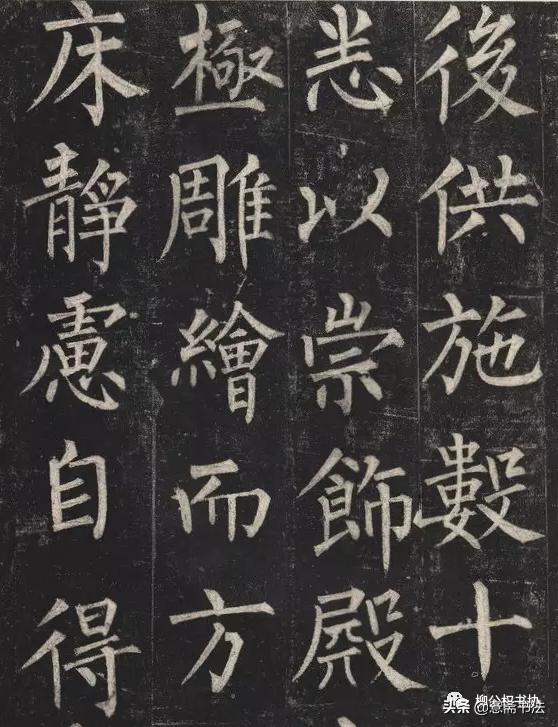 後供施數十
悉以崇飾殿
極雕繪而方
床靜慮自得
柳公权书协
头条@慈斋书法